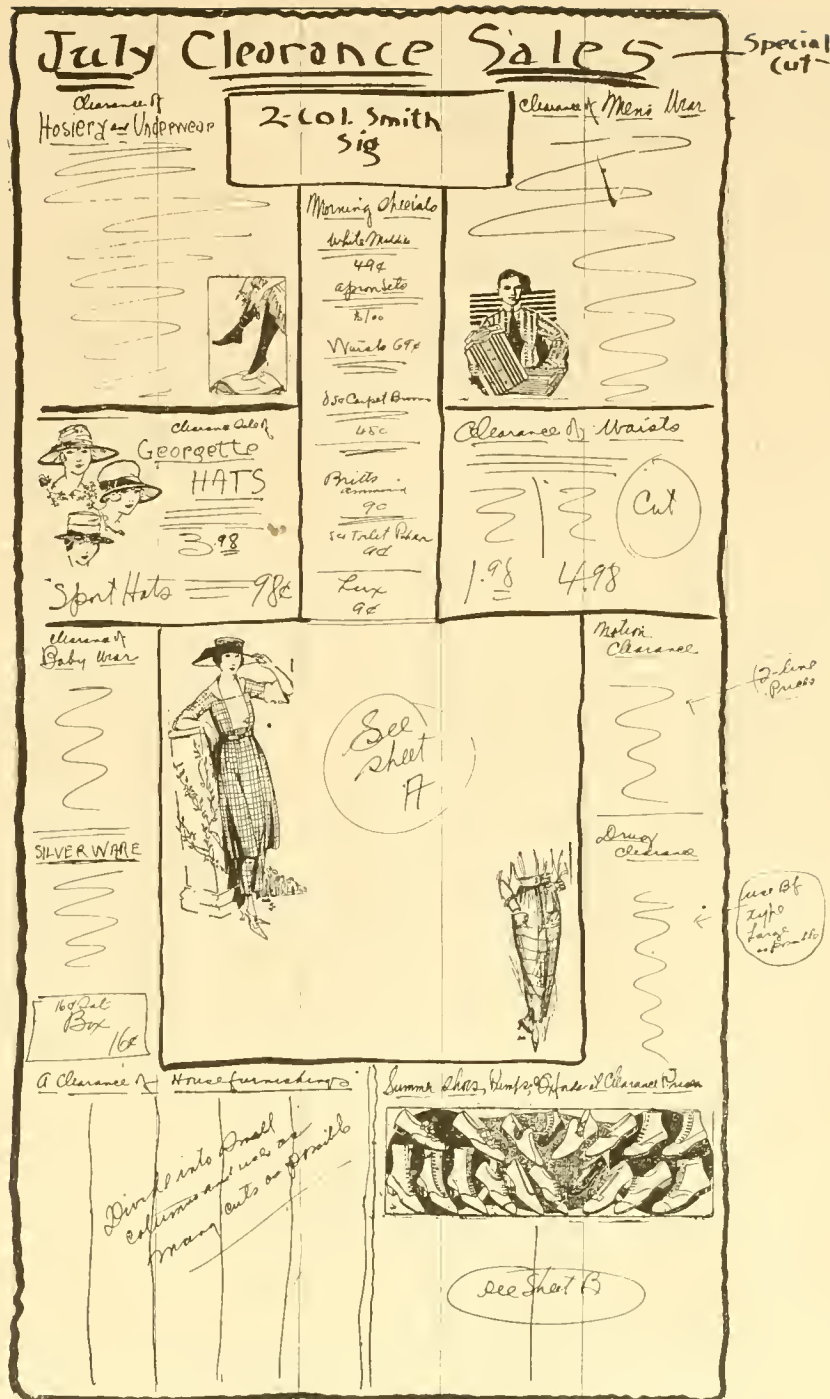 July Clearance Sales
Special
Cut
Clearance of
Hosiery and Underwear
2-Col. Smith
Sig
Clearance of Men's Wear
Morning Specials
White Middies
49¢
apron sets
$1.00
Waists 69¢
Carpet Brooms
45c
Britts
ammonia
9c
Toilet Paper
9¢
Lux
9¢
Clearance Sale of
Georgette
HATS
3.98
Sport Hats 98¢
Clearance of Waists
Cut
1.98 4.98
Clearance of
Baby Wear
SILVERWARE
16¢ Salt
Box
16¢
See
Sheet
A
Notion
Clearance
12-line
Prices
Drug
Clearance
use Bf
type
Large
as possible
A Clearance of Housefurnishings
Divide into small
columns and use as
many cuts as possible
Summer Shoes, Pumps, Oxfords at Clearance Prices
see Sheet B